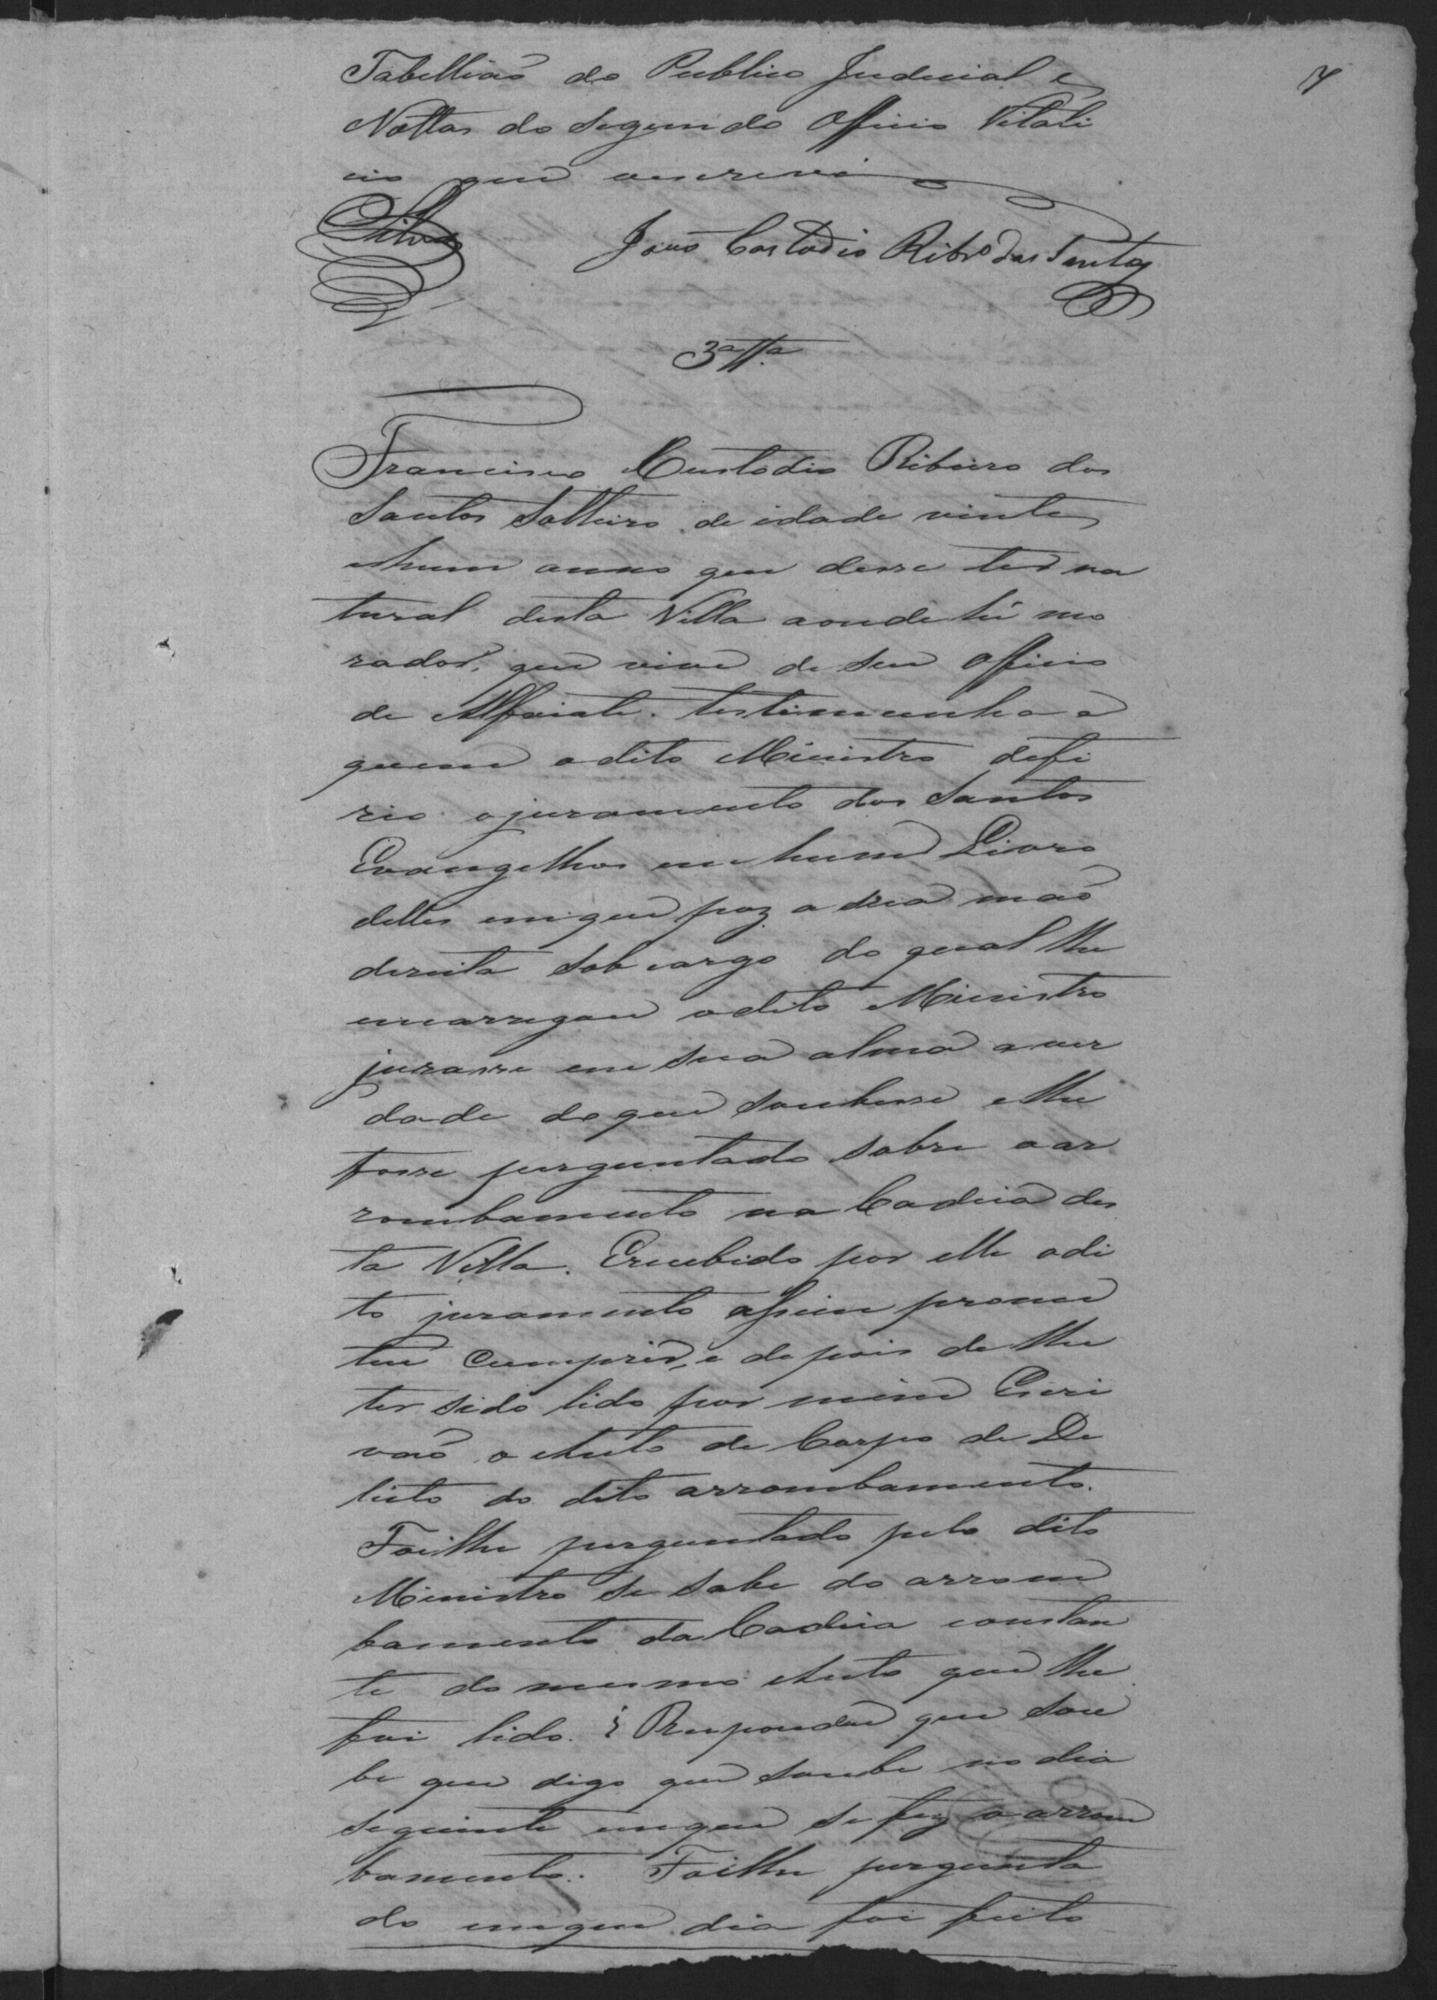 7
Tabelliaõ do Publico Judicial e
Nottas do segundo Officio Vitali
cio que oescrevi
Silva João Custodio Ribrº dos Santos
3ª Tª
Francisco Custodio Ribeiro dos
Santos Solteiro de idade vinte
ehum annos que disse ter na
tural desta Villa aonde hé mo
rador, que vive de seu Officio
de Alfaiate. testimunha a
quem o dito Ministro defi
rio o juramento dos Santos
Evangelhos em hum Livro
delles emque poz a sua maõ
direita sob cargo do qual lhe
encarregou odito Ministro
jurasse em sua alma a ver
dade doque soubesse elhe
fosse perguntado sobre o ar
rombamento na Cadeia des
ta Villa. Erecebido por elle odi
to juramento assim prome
teu cumprir, e depois de lhe
ter sido lido por mim Escri
vaõ o Auto de Corpo de De
licto do dito arrombamento.
Foilhe perguntado pelo dito
Ministro se sabe do arrom
bamento da Cadeia constan
te do mesmo Auto que lhe
foi lido. Respondeu que sou
be que digo que soube no dia
seguinte emque se fez o arrom
bamento. Foilhe pergunta
do emque dia foi feito